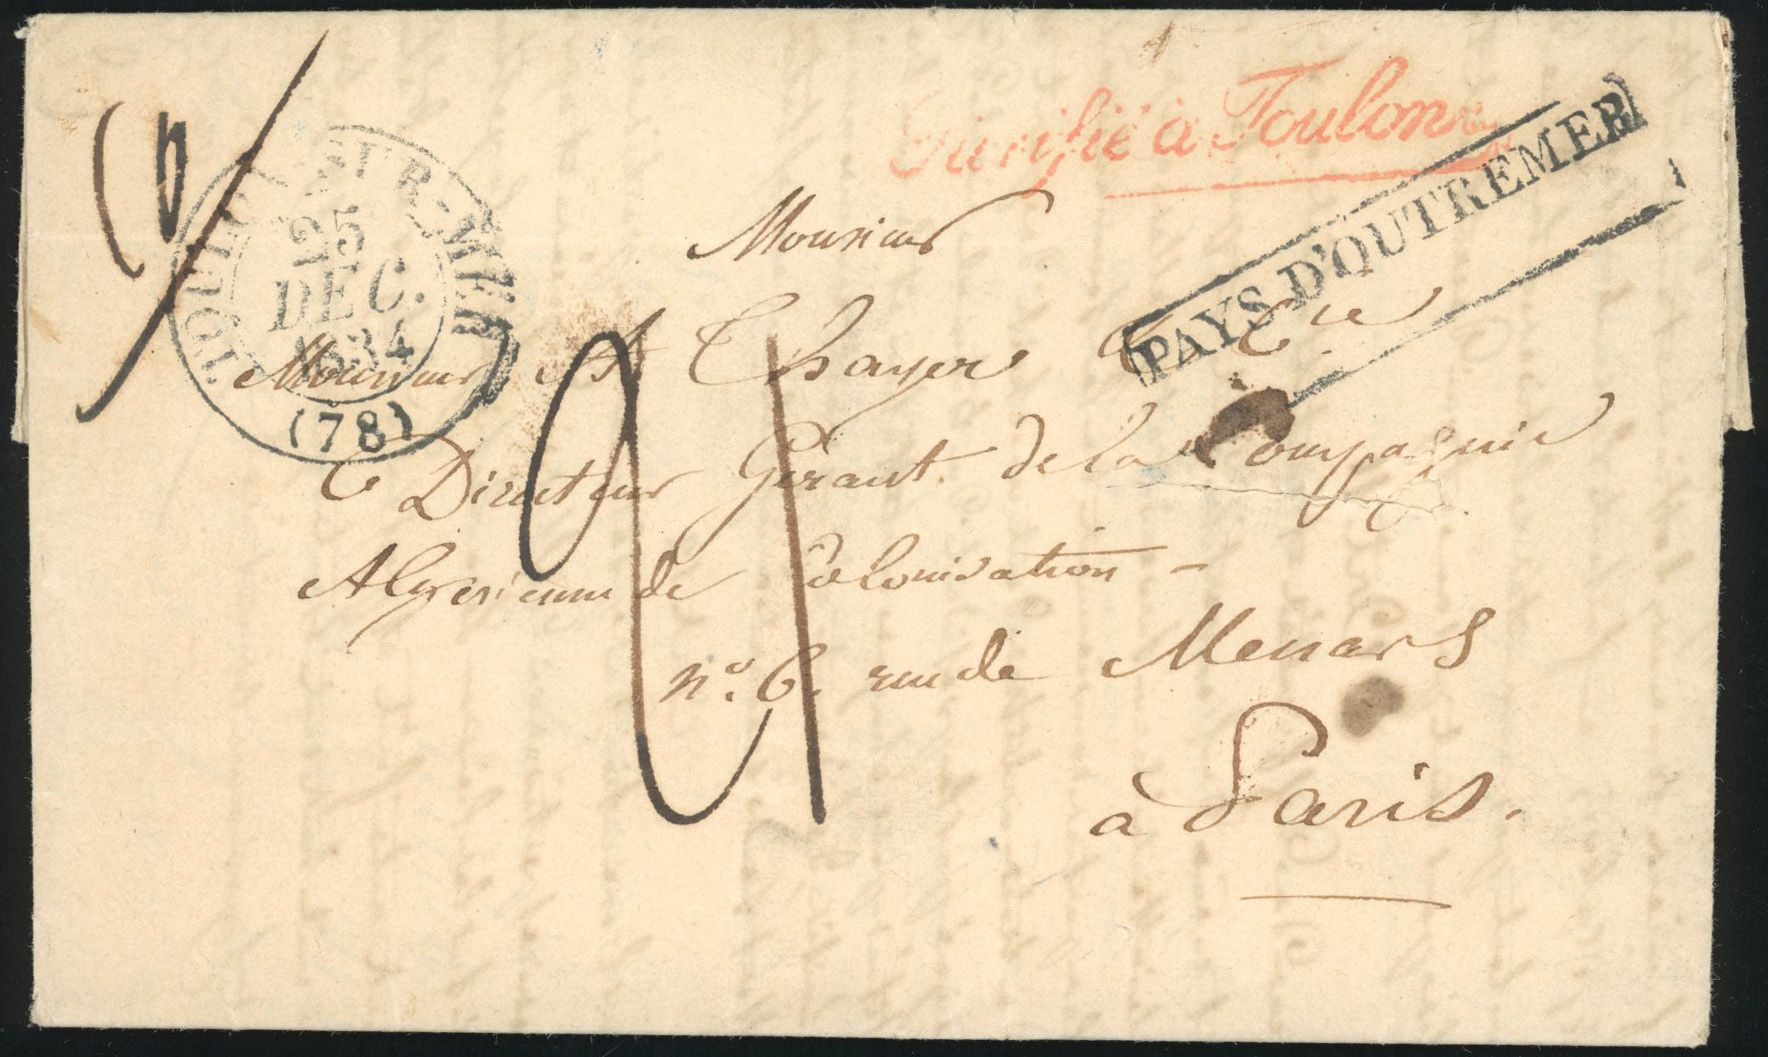 Purifié à Toulon
PAYS D'OUTREMER
TOULON-SUR-MER
25
DEC.
1834
(78)
Monsieur
Monsieur A Thayer & Cie
Directeur Gérant de la Compagnie
Algerienne de Colonisation -
no. 6. rue de Menars
à Paris.
21